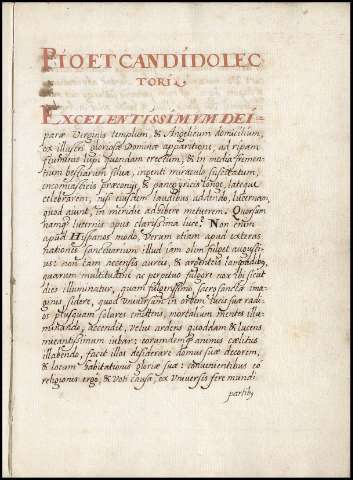 PÍO ET CANDÍDO LEC
TORI.
EXCELENTÍSSIMVM DEÍ-
paræ Virginis templum, & Angelicum domicilium,
ex illustri gloriosæ Dominæ apparitione, ad ripam
fluminis lupi quondam erectum, & in media ferarum
bestiarum silua, ingenti miraculo suscitatum,
encomiasticis præconijs, & panegyricis longe, lateque
celebrarem, nisi eiusdem laudibus addendo, lucernam,
quod aiunt, in meridie adhibere metuerem. Quorsum
namq; luternis opus clarissima luce? Non enim
apud Hispanos modo, verum etiam apud exteras
nationes sanctuarium illud iam olim fulget augustis-
sius: non tam accensis aureis, & argenteis lampadibus,
quarum multitudine ac perpetuo fulgore nox ibi sicut
dies illuminatur, quam fulgentissimo sacrosanctæ ima-
ginis sidere, quod vniuersum in orbem lucis suæ radi-
os plusquam solares emittens, mortalium mentes illu-
minando, accendit, velut ardens quoddam & lucens
iuuantissimum iubar: eorumdemque animis cælitus
illabendo, facit illos desiderare domus suæ decorem,
& locum habitationis gloriæ suæ: conuenientibus eo
religionis ergo, & voti causa, ex vniuersis fere mundi
partibꝰ